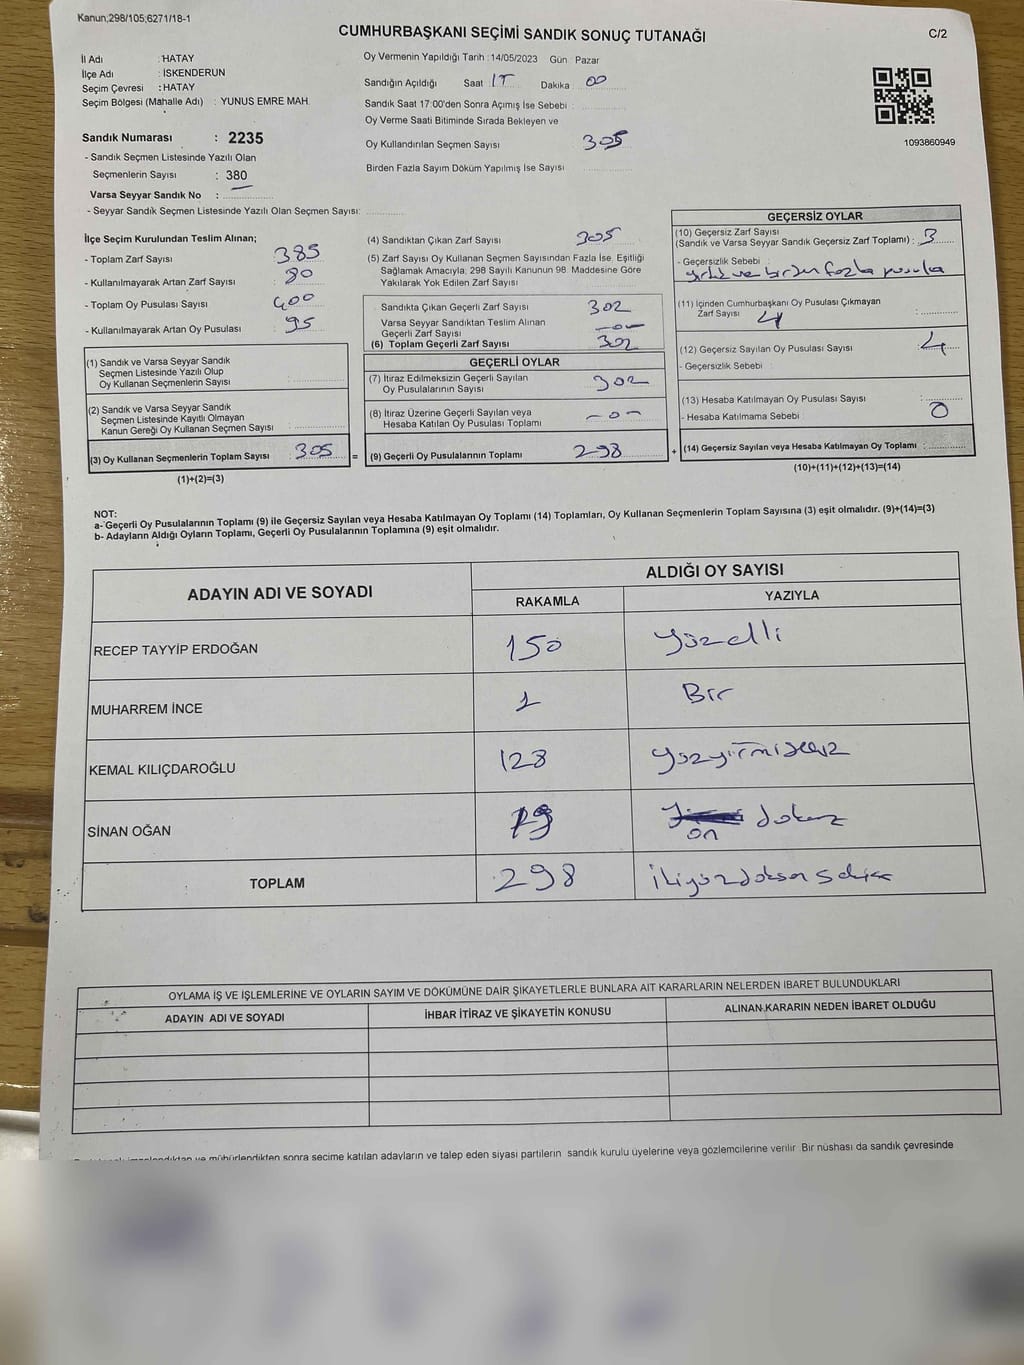 Kanun;298/105;6271/18-1
CUMHURBAŞKANI SEÇİMİ SANDIK SONUÇ TUTANAĞI
C/2
İl Adı : HATAY
İlçe Adı : İSKENDERUN
Seçim Çevresi : HATAY
Seçim Bölgesi (Mahalle Adı) : YUNUS EMRE MAH.
Oy Vermenin Yapıldığı Tarih : 14/05/2023 Gün Pazar
Sandığın Açıldığı Saat 17 Dakika : 00
Sandık Saat 17:00'den Sonra Açımış İse Sebebi :
Oy Verme Saati Bitiminde Sırada Bekleyen ve
Oy Kullandırılan Seçmen Sayısı 305
Birden Fazla Sayım Döküm Yapılmış İse Sayısı
1093860949
Sandık Numarası : 2235
- Sandık Seçmen Listesinde Yazılı Olan
Seçmenlerin Sayısı : 380
Varsa Seyyar Sandık No :
- Seyyar Sandık Seçmen Listesinde Yazılı Olan Seçmen Sayısı:
İlçe Seçim Kurulundan Teslim Alınan;
- Toplam Zarf Sayısı : 385
- Kullanılmayarak Artan Zarf Sayısı : 80
- Toplam Oy Pusulası Sayısı : 400
- Kullanılmayarak Artan Oy Pusulası : 95
(1) Sandık ve Varsa Seyyar Sandık
Seçmen Listesinde Yazılı Olup
Oy Kullanan Seçmenlerin Sayısı :
(2) Sandık ve Varsa Seyyar Sandık
Seçmen Listesinde Kayıtlı Olmayan
Kanun Gereği Oy Kullanan Seçmen Sayısı :
(3) Oy Kullanan Seçmenlerin Toplam Sayısı 305 =
(1)+(2)=(3)
(4) Sandıktan Çıkan Zarf Sayısı 305
(5) Zarf Sayısı Oy Kullanan Seçmen Sayısından Fazla İse, Eşitliği
Sağlamak Amacıyla, 298 Sayılı Kanunun 98. Maddesine Göre
Yakılarak Yok Edilen Zarf Sayısı :
Sandıkta Çıkan Geçerli Zarf Sayısı 302
Varsa Seyyar Sandıktan Teslim Alınan
Geçerli Zarf Sayısı -0-
(6) Toplam Geçerli Zarf Sayısı 302
GEÇERLİ OYLAR
(7) İtiraz Edilmeksizin Geçerli Sayılan
Oy Pusulalarının Sayısı 302
(8) İtiraz Üzerine Geçerli Sayılan veya
Hesaba Katılan Oy Pusulası Toplamı -0-
(9) Geçerli Oy Pusulalarının Toplamı 298 +
GEÇERSİZ OYLAR
(10) Geçersiz Zarf Sayısı
(Sandık ve Varsa Seyyar Sandık Geçersiz Zarf Toplamı) : 3
- Geçersizlik Sebebi :
yırtık ve birden fazla pusula
(11) İçinden Cumhurbaşkanı Oy Pusulası Çıkmayan
Zarf Sayısı 4 :
(12) Geçersiz Sayılan Oy Pusulası Sayısı 4
- Geçersizlik Sebebi :
(13) Hesaba Katılmayan Oy Pusulası Sayısı :
- Hesaba Katılmama Sebebi : 0
(14) Geçersiz Sayılan veya Hesaba Katılmayan Oy Toplamı :
(10)+(11)+(12)+(13)=(14)
NOT:
a- Geçerli Oy Pusulalarının Toplamı (9) ile Geçersiz Sayılan veya Hesaba Katılmayan Oy Toplamı (14) Toplamları, Oy Kullanan Seçmenlerin Toplam Sayısına (3) eşit olmalıdır. (9)+(14)=(3)
b- Adayların Aldığı Oyların Toplamı, Geçerli Oy Pusulalarının Toplamına (9) eşit olmalıdır.
ADAYIN ADI VE SOYADI
ALDIĞI OY SAYISI
RAKAMLA YAZIYLA
RECEP TAYYİP ERDOĞAN 150 Yüzelli
MUHARREM İNCE 1 Bir
KEMAL KILIÇDAROĞLU 128 Yüzyirmisekiz
SİNAN OĞAN 19 on dokuz
TOPLAM 298 ikiyüzdoksan sekiz
OYLAMA İŞ VE İŞLEMLERİNE VE OYLARIN SAYIM VE DÖKÜMÜNE DAİR ŞİKAYETLERLE BUNLARA AİT KARARLARIN NELERDEN İBARET BULUNDUKLARI
ADAYIN ADI VE SOYADI
İHBAR İTİRAZ VE ŞİKAYETİN KONUSU
ALINAN KARARIN NEDEN İBARET OLDUĞU
mühürlendikten sonra seçime katılan adayların ve talep eden siyasi partilerin sandık kurulu üyelerine veya gözlemcilerine verilir. Bir nüshası da sandık çevresinde